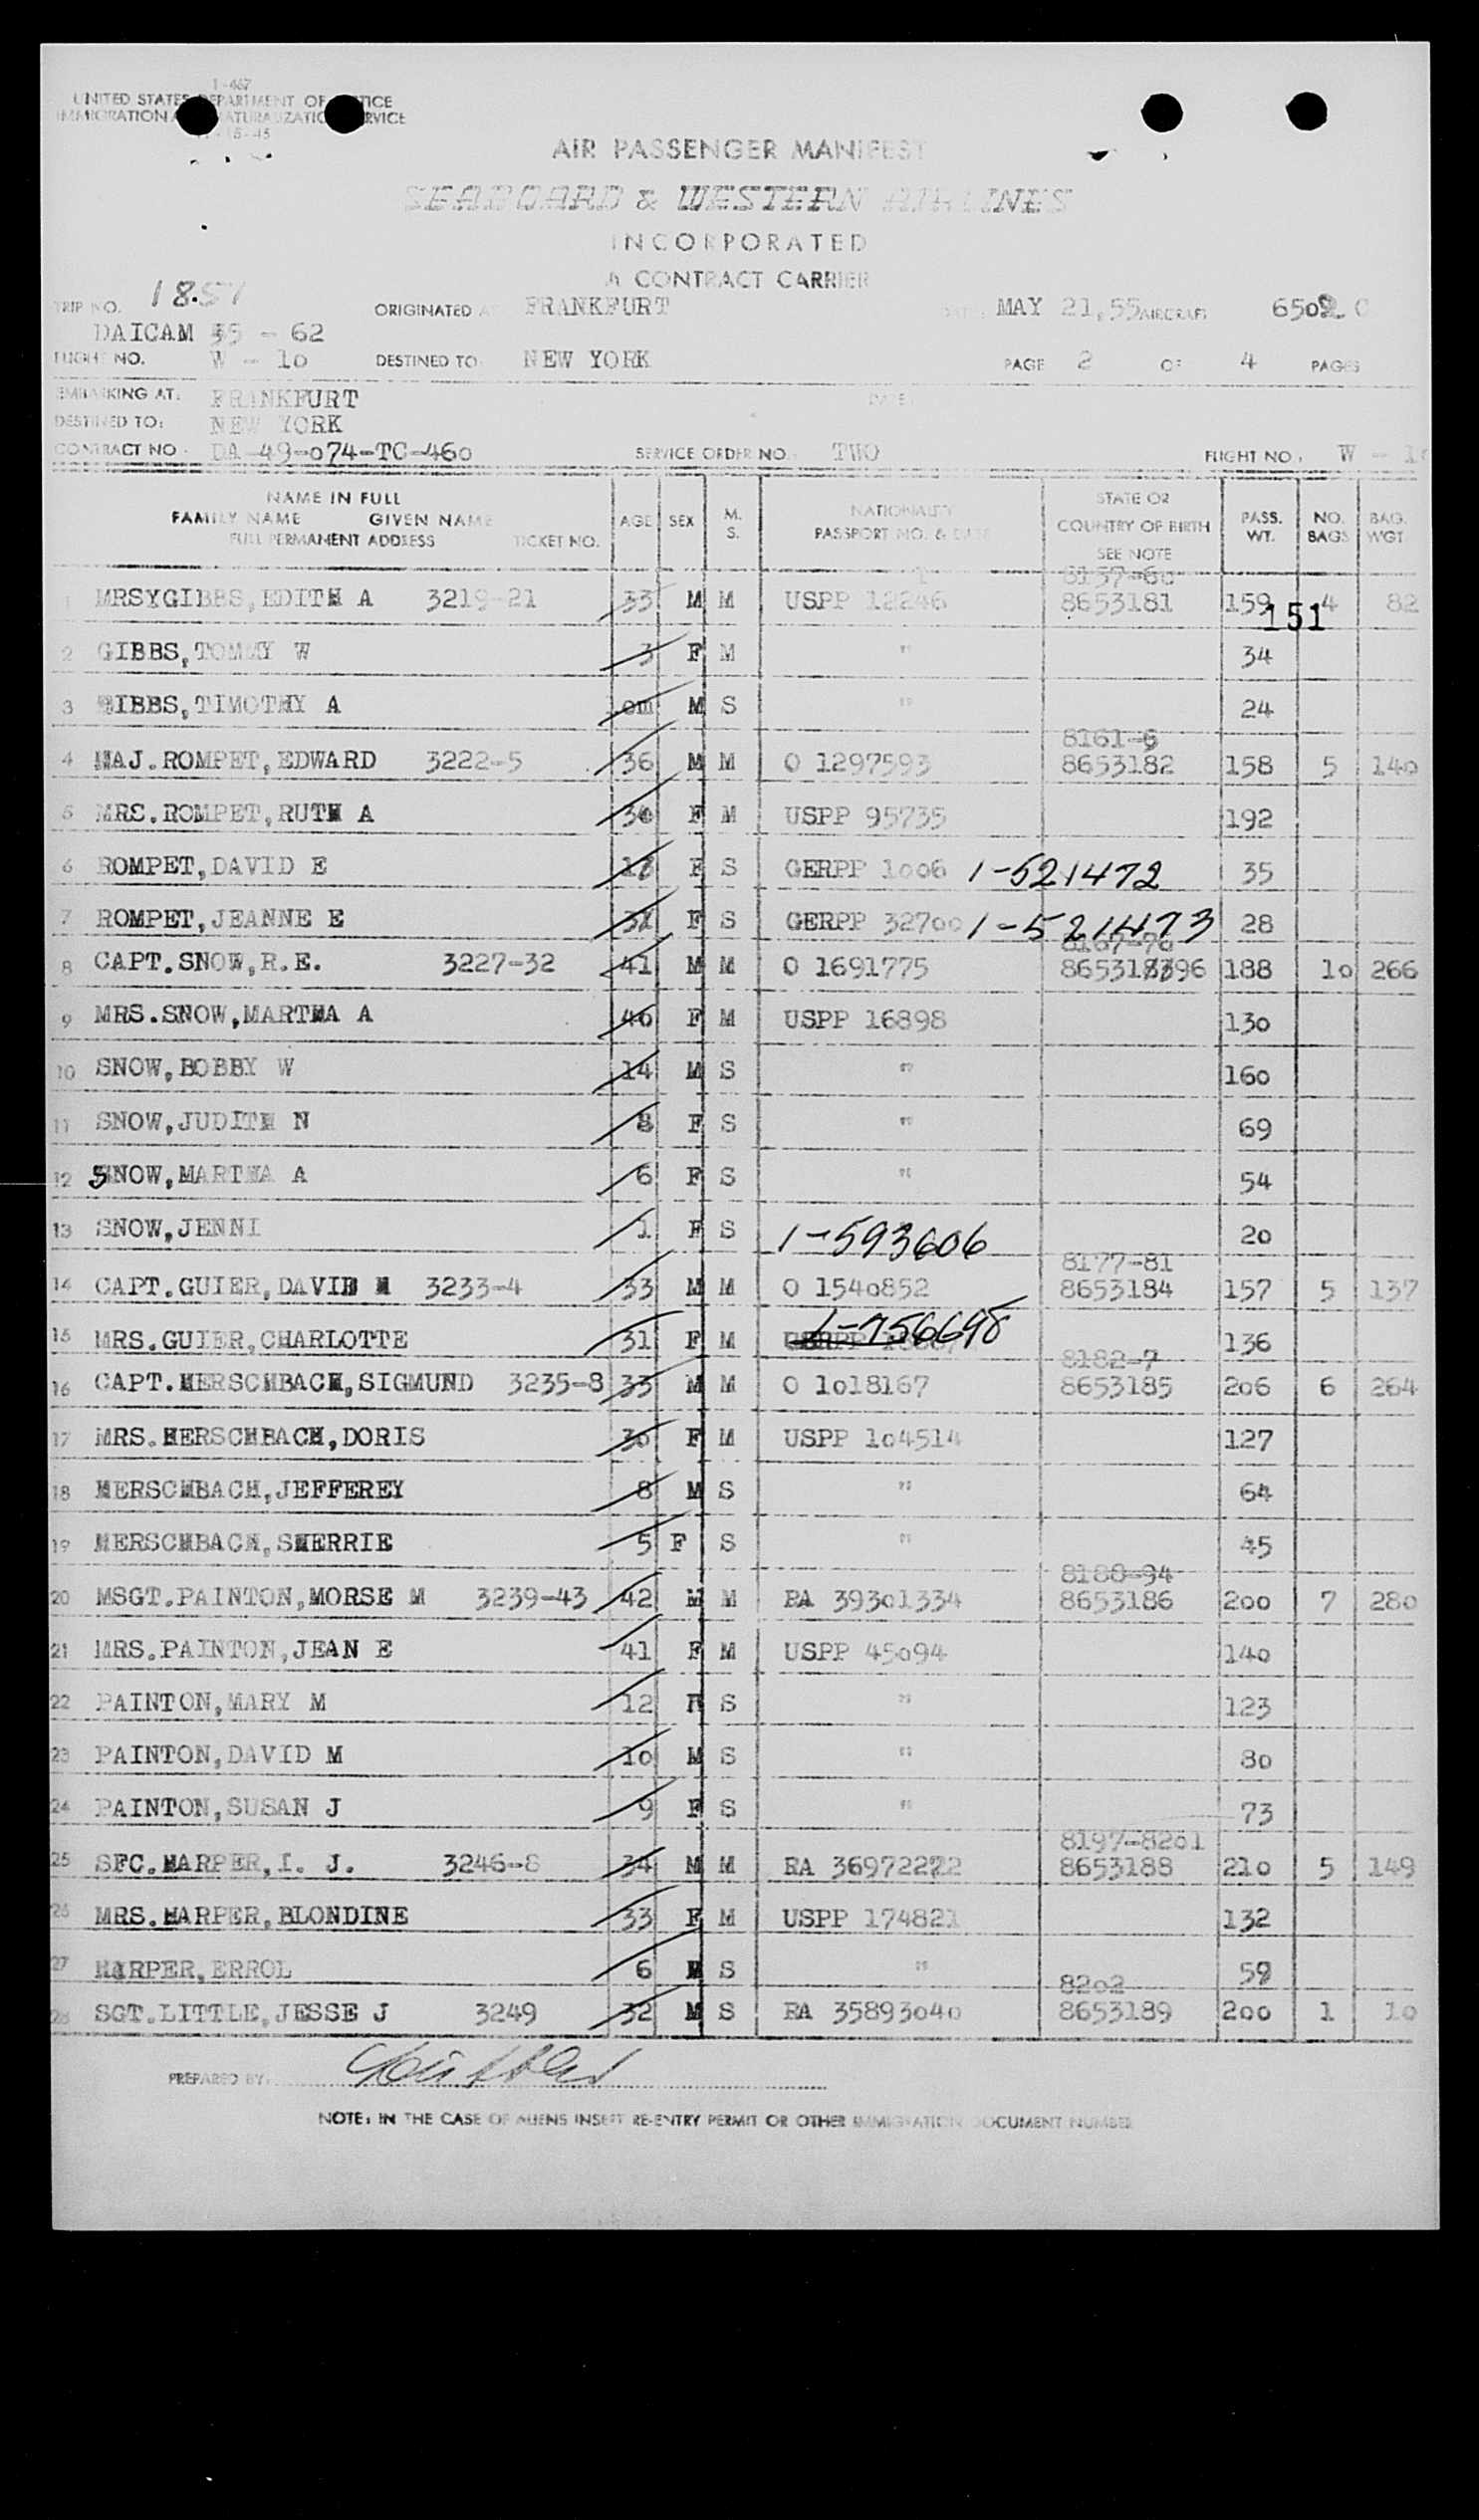 I-467
UNITED STATES DEPARTMENT OF JUSTICE
IMMIGRATION NATURALIZATION SERVICE
AIR PASSENGER MANIFEST
SEABOARD & WESTERN AIRLINES
INCORPORATED
A CONTRACT CARRIER
TRIP NO. 18.57 ORIGINATED AT FRANKFURT DATE: MAY 21,55 AIRCRAFT 6502 C
DAICAM 55 - 62
FLIGHT NO. W - 10 DESTINED TO: NEW YORK PAGE 2 OF 4 PAGES
EMBARKING AT: FRANKFURT DATE:
DESTINED TO: NEW YORK
CONTRACT NO. DA-49-074-TC-460 SERVICE ORDER NO. TWO FLIGHT NO. W - 10
NAME IN FULL
FAMILY NAME GIVEN NAME
FULL PERMANENT ADDRESS TICKET NO. AGE SEX M. S. NATIONALITY PASSPORT NO. & DATE STATE OR COUNTRY OF BIRTH SEE NOTE PASS. WT. NO. BAGS BAG. WGT.
8157-60
1 MRSYGIBBS,EDITH A 3219-21 33 M M USPP 12246 8653181 159 4 82
151
2 GIBBS,TOMMY W 3 F M " 34
3 GIBBS,TIMOTHY A om M S " 24
8161-6
4 MAJ.ROMPET,EDWARD 3222-5 36 M M O 1297593 8653182 158 5 140
5 MRS.ROMPET,RUTH A 30 F M USPP 95735 192
6 ROMPET,DAVID E F S GERPP 1006 1-521472 35
7 ROMPET,JEANNE E F S GERPP 32700 1-521473 28
8167-76
8 CAPT.SNOW,R.E. 3227-32 41 M M O 1691775 188 10 266
9 MRS.SNOW,MARTHA A 40 F M USPP 16898 130
10 SNOW,BOBBY W 14 M S " 160
11 SNOW,JUDITH N 8 F S " 69
12 SNOW,MARTHA A 6 F S " 54
13 SNOW,JENNI 1 F S 1-593606 20
8177-81
14 CAPT.GUIER,DAVID M 3233-4 33 M M O 1540852 8653184 157 5 137
15 MRS.GUIER,CHARLOTTE 31 F M 1-756698 136
8182-7
16 CAPT.HERSCHBACH,SIGMUND 3235-8 33 M M O 1018167 8653185 206 6 264
17 MRS.HERSCHBACH,DORIS 30 F M USPP 104514 127
18 HERSCHBACH,JEFFEREY 8 M S " 64
19 HERSCHBACH,SHERRIE 5 F S " 45
8188-94
20 MSGT.PAINTON,MORSE M 3239-43 42 M M RA 39301334 8653186 200 7 280
21 MRS.PAINTON,JEAN E 41 F M USPP 45094 140
22 PAINTON,MARY M 12 F S " 123
23 PAINTON,DAVID M 10 M S " 80
24 PAINTON,SUSAN J 9 F S " 73
8197-8201
25 SFC.HARPER,I. J. 3246-8 34 M M RA 36972272 8653188 210 5 149
26 MRS.HARPER,BLONDINE 33 F M USPP 174821 132
27 HARPER,ERROL 6 M S " 59
8202
28 SGT.LITTLE,JESSE J 3249 32 M S RA 35893040 8653189 200 1 10
PREPARED BY:
NOTE: IN THE CASE OF ALIENS INSERT RE-ENTRY PERMIT OR OTHER IMMIGRATION DOCUMENT NUMBER